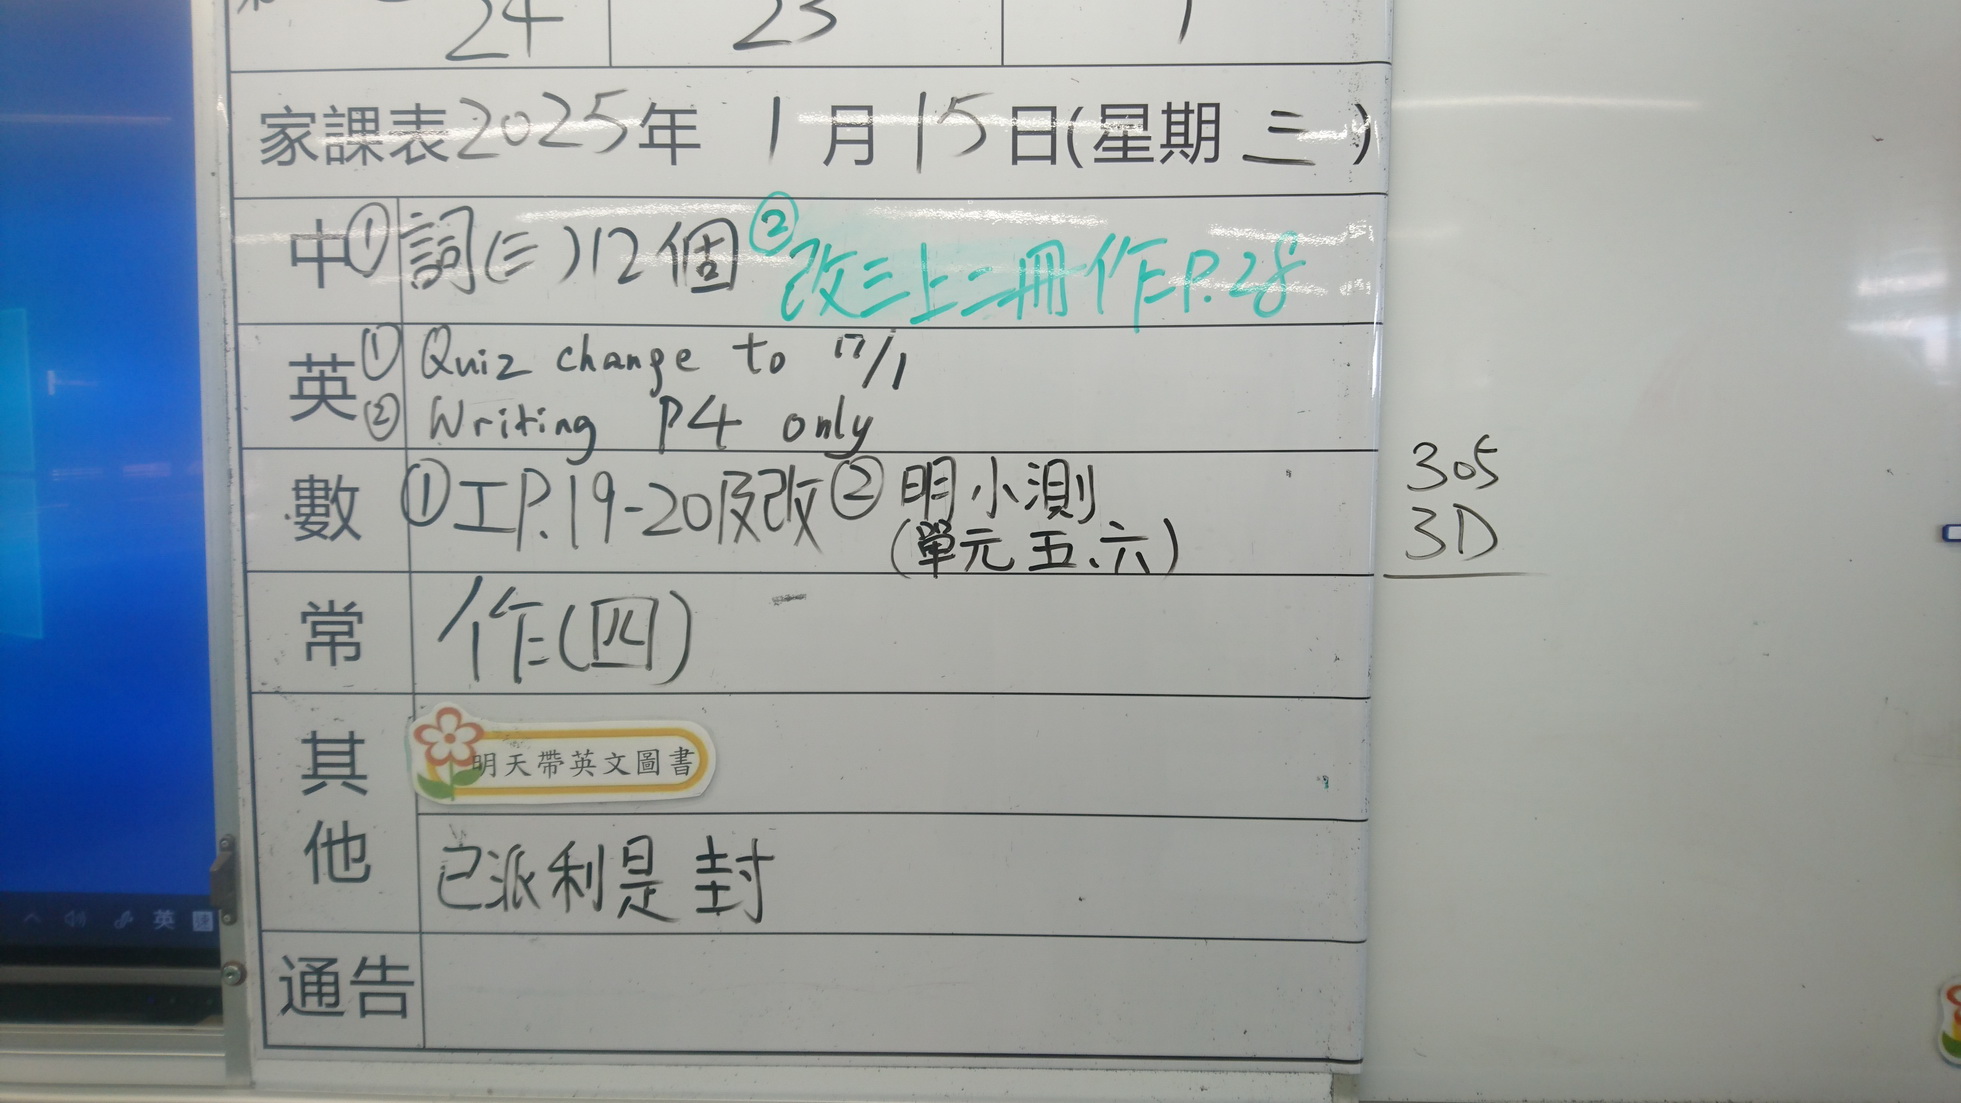 24 23 1
家課表2025年 1月15日(星期三)
中 ①詞(三)12個 ②改三上二冊作P.28
英 ① Quiz change to 17/1
② Writing P4 only
數 ①工P.19-20及改 ②明小測
(單元五、六)
305
3D
常 作(四)
其他 明天帶英文圖書
已派利是封
通告
英